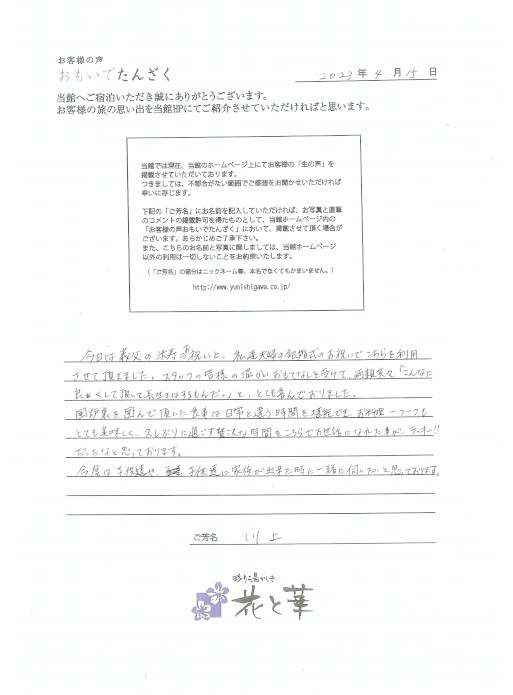 お客様の声
おもいでたんざく
2023年4月15日
当館へご宿泊いただき誠にありがとうございます。
お客様の旅の思い出を当館HPにてご紹介させていただければと思います。
当館では現在、当館のホームページ上にてお客様の「生の声」を
掲載させていただいております。
つきましては、不都合がない範囲でご感想をお聞かせいただければ
幸いに存じます。
下記の「ご芳名」にお名前を記入していただければ、お写真と直筆
のコメントの掲載許可を得たものとして、当館ホームページ内の
「お客様の声おもいでたんざく」において、掲載させて頂く場合が
ございます。あらかじめご了承下さい。
また、こちらのお名前と写真に関しましては、当館ホームページ
以外の利用は一切しないことをお約束いたします。
(「ご芳名」の部分はニックネーム等、本名でなくてもかまいません。)
http://www.yunishigawa.co.jp/
今日は義父の米寿のお祝いと、私達夫婦の銀婚式のお祝いでこちらを利用
させて頂きました。スタッフの皆様の温かいおもてなしを受けて、両親共々「こんなに
良くして頂いて長生きはするもんだ。」と、とても喜んでおりました。
囲炉裏を囲んで頂いた食事は日常と違う時間を堪能でき、お料理一つ一つも
とても美味しく、久しぶりに過ごす贅沢な時間をこちらでお世話になれた事が、ラッキー!!
だったなと思っております。
今度は子供達や、子供達に家族が出来た時に一緒に伺いたいと思っております。
ご芳名 川上
彩り湯かしき
花と華